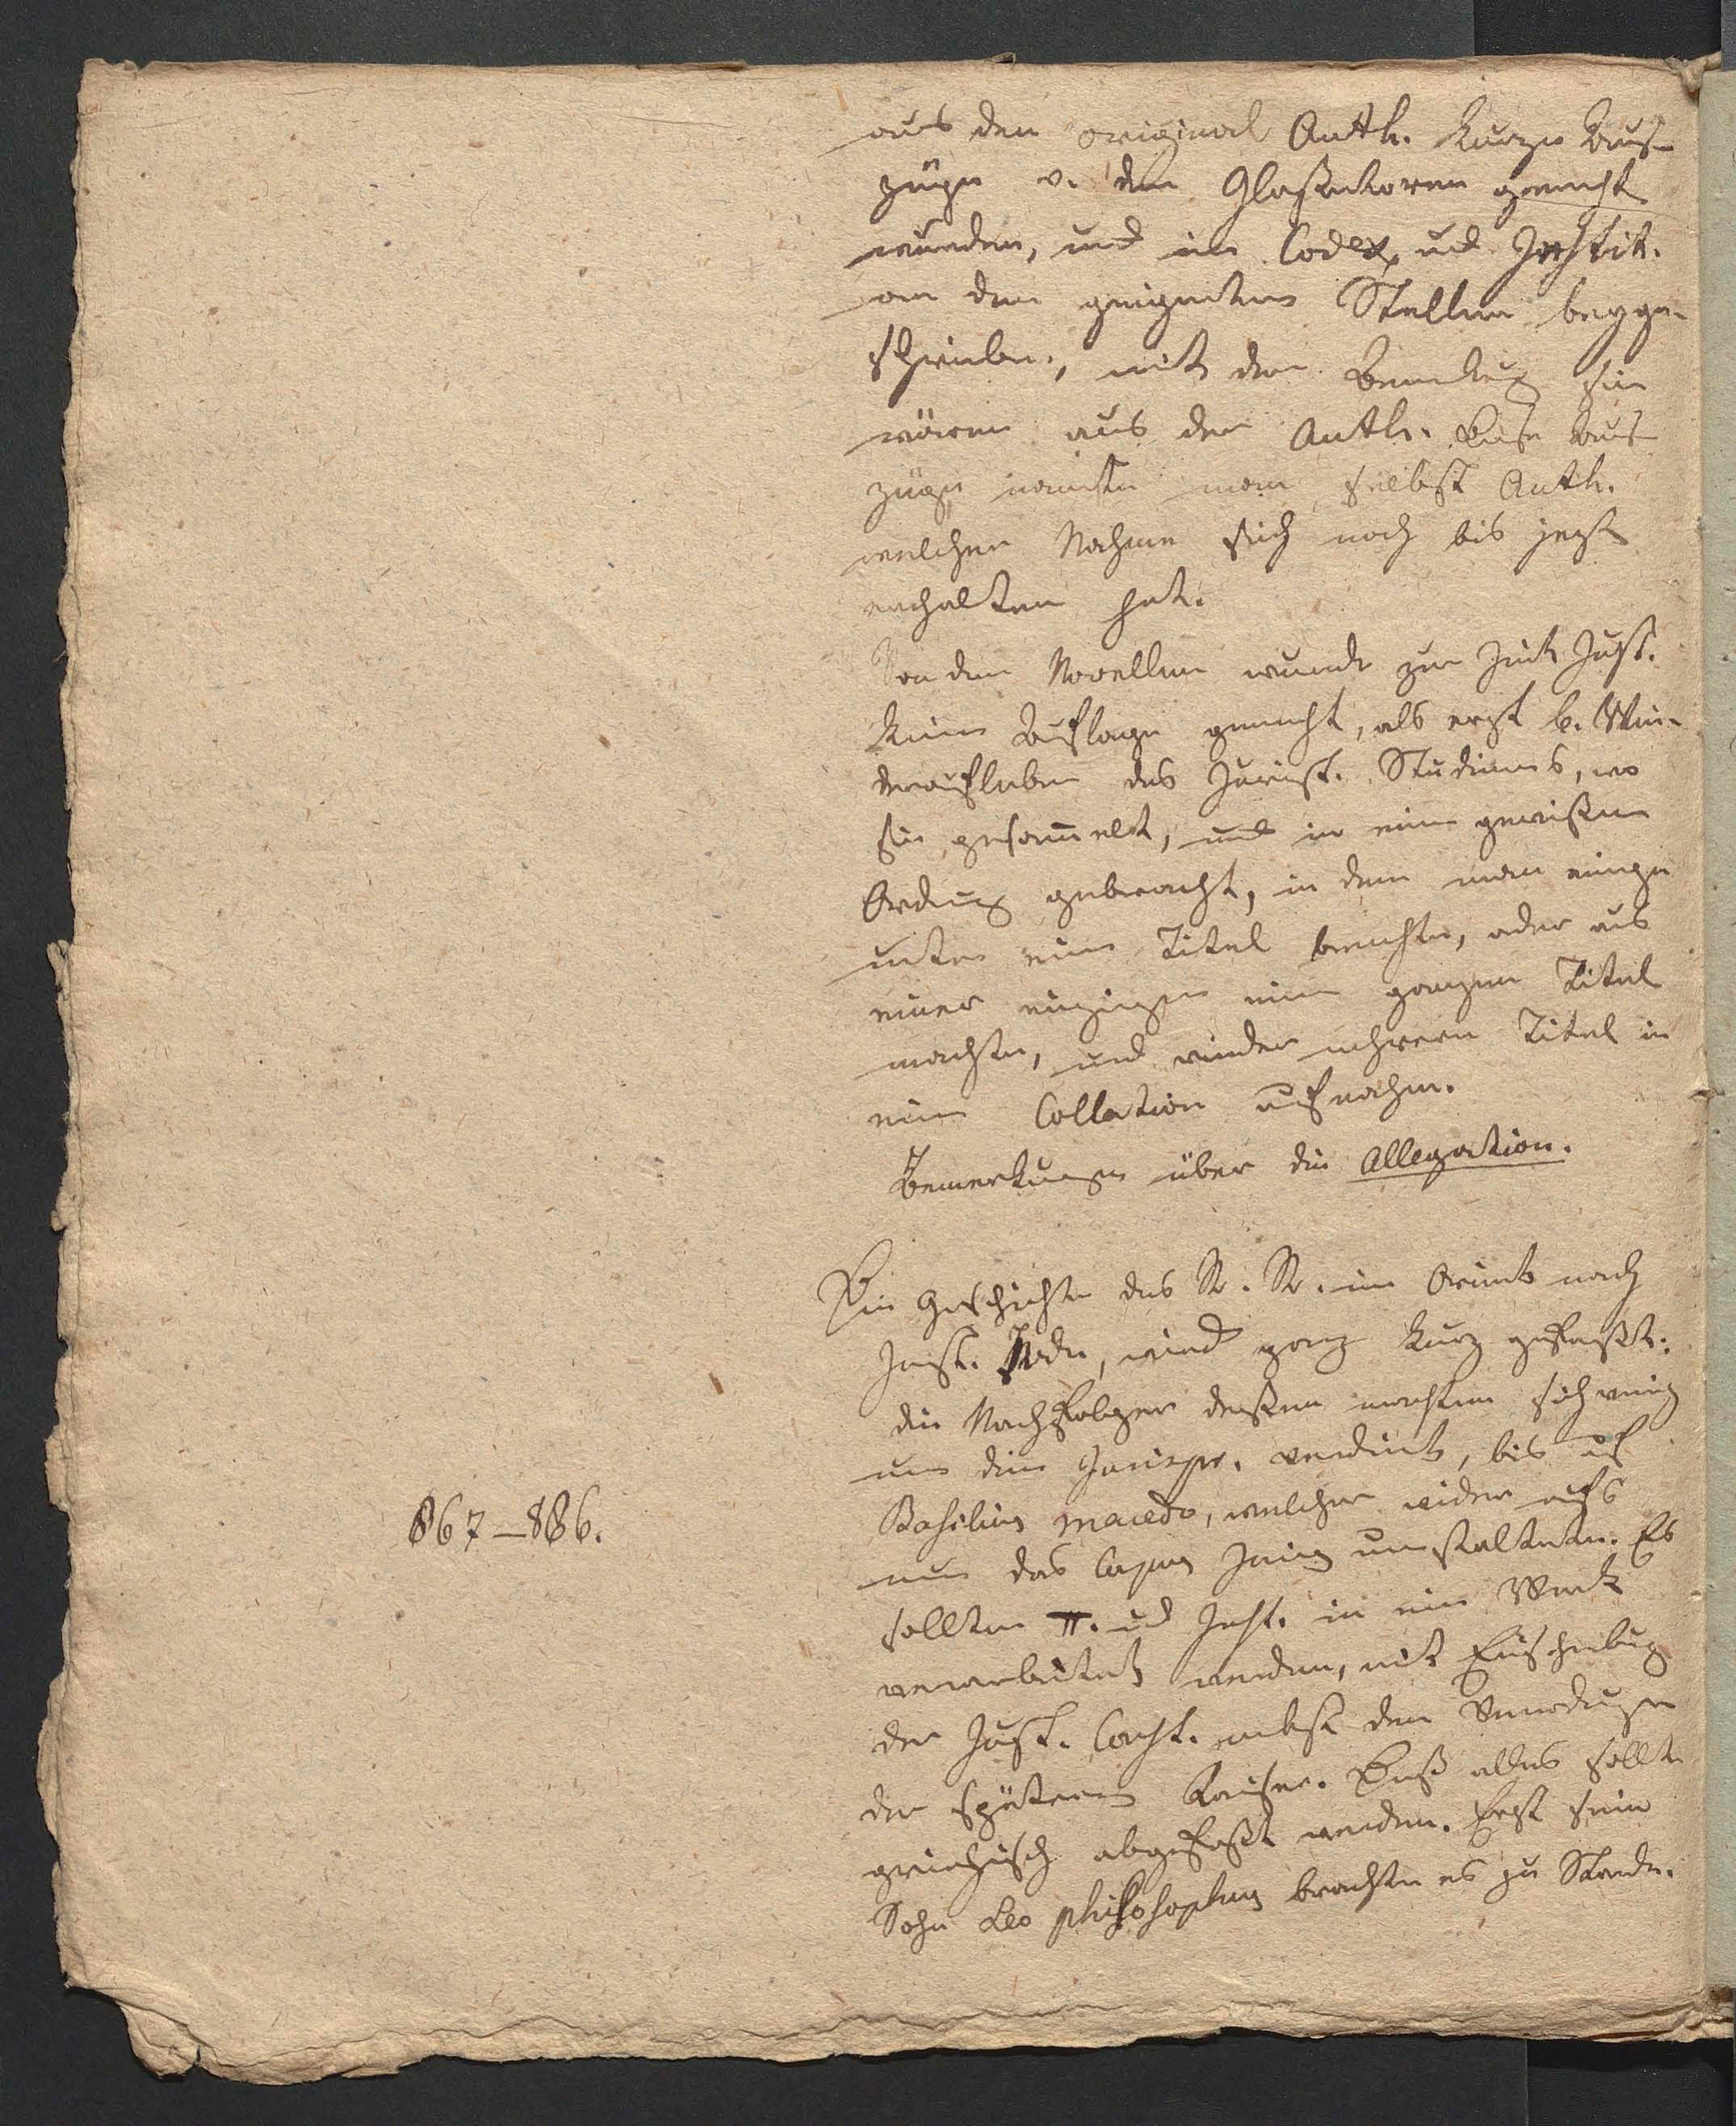 aus den original Auth. kurze Aus-
züge v. den Glossatoren gemacht
wurden, und im Codex und Instit.
an den geeigneten Stellen beyge-
schrieben, mit dem Bemerkung sie
wären aus den Auth. Diese Aus-
züge nannte man selbst Auth.
welcher Nahme sich noch bis jezt
erhalten hat.
Von den Novellen wurde zur Zeit Just.
keine Auflage gemacht, als erst b. Wie-
deraufleben des Jurist. Studiums, wo
sie gesam̄elt, und in eine gewißen
Ordnung gebracht, in dem man einige
unter einen Titel brachte, oder aus
einer einzigen einen ganzen Titel
machte, und wieder mehrere Titel in
eine Collation aufnahm.
Bemerkungen über die Allegation.
Die Geschichte des R. R. im Orient nach
Just. Tode, wird ganz kurz gefaßt.
die Nachfolger deßen machten sich wenig
um die Jurispr. verdient, bis auf
867–886.
Basilius macedo, welcher wieder aufs
neue das Corpus Juris umstaltete. Es
sollten π. und Inst. in ein Werk
verarbeitet werden, mit Einschiebung
der Just. Const. nebst den Verordnungen
der spätern Kaiser. Dieß alles sollte
griechisch abgefaßt werden. Erst sein
Sohn Leo philosophus brachte es zu Stande.